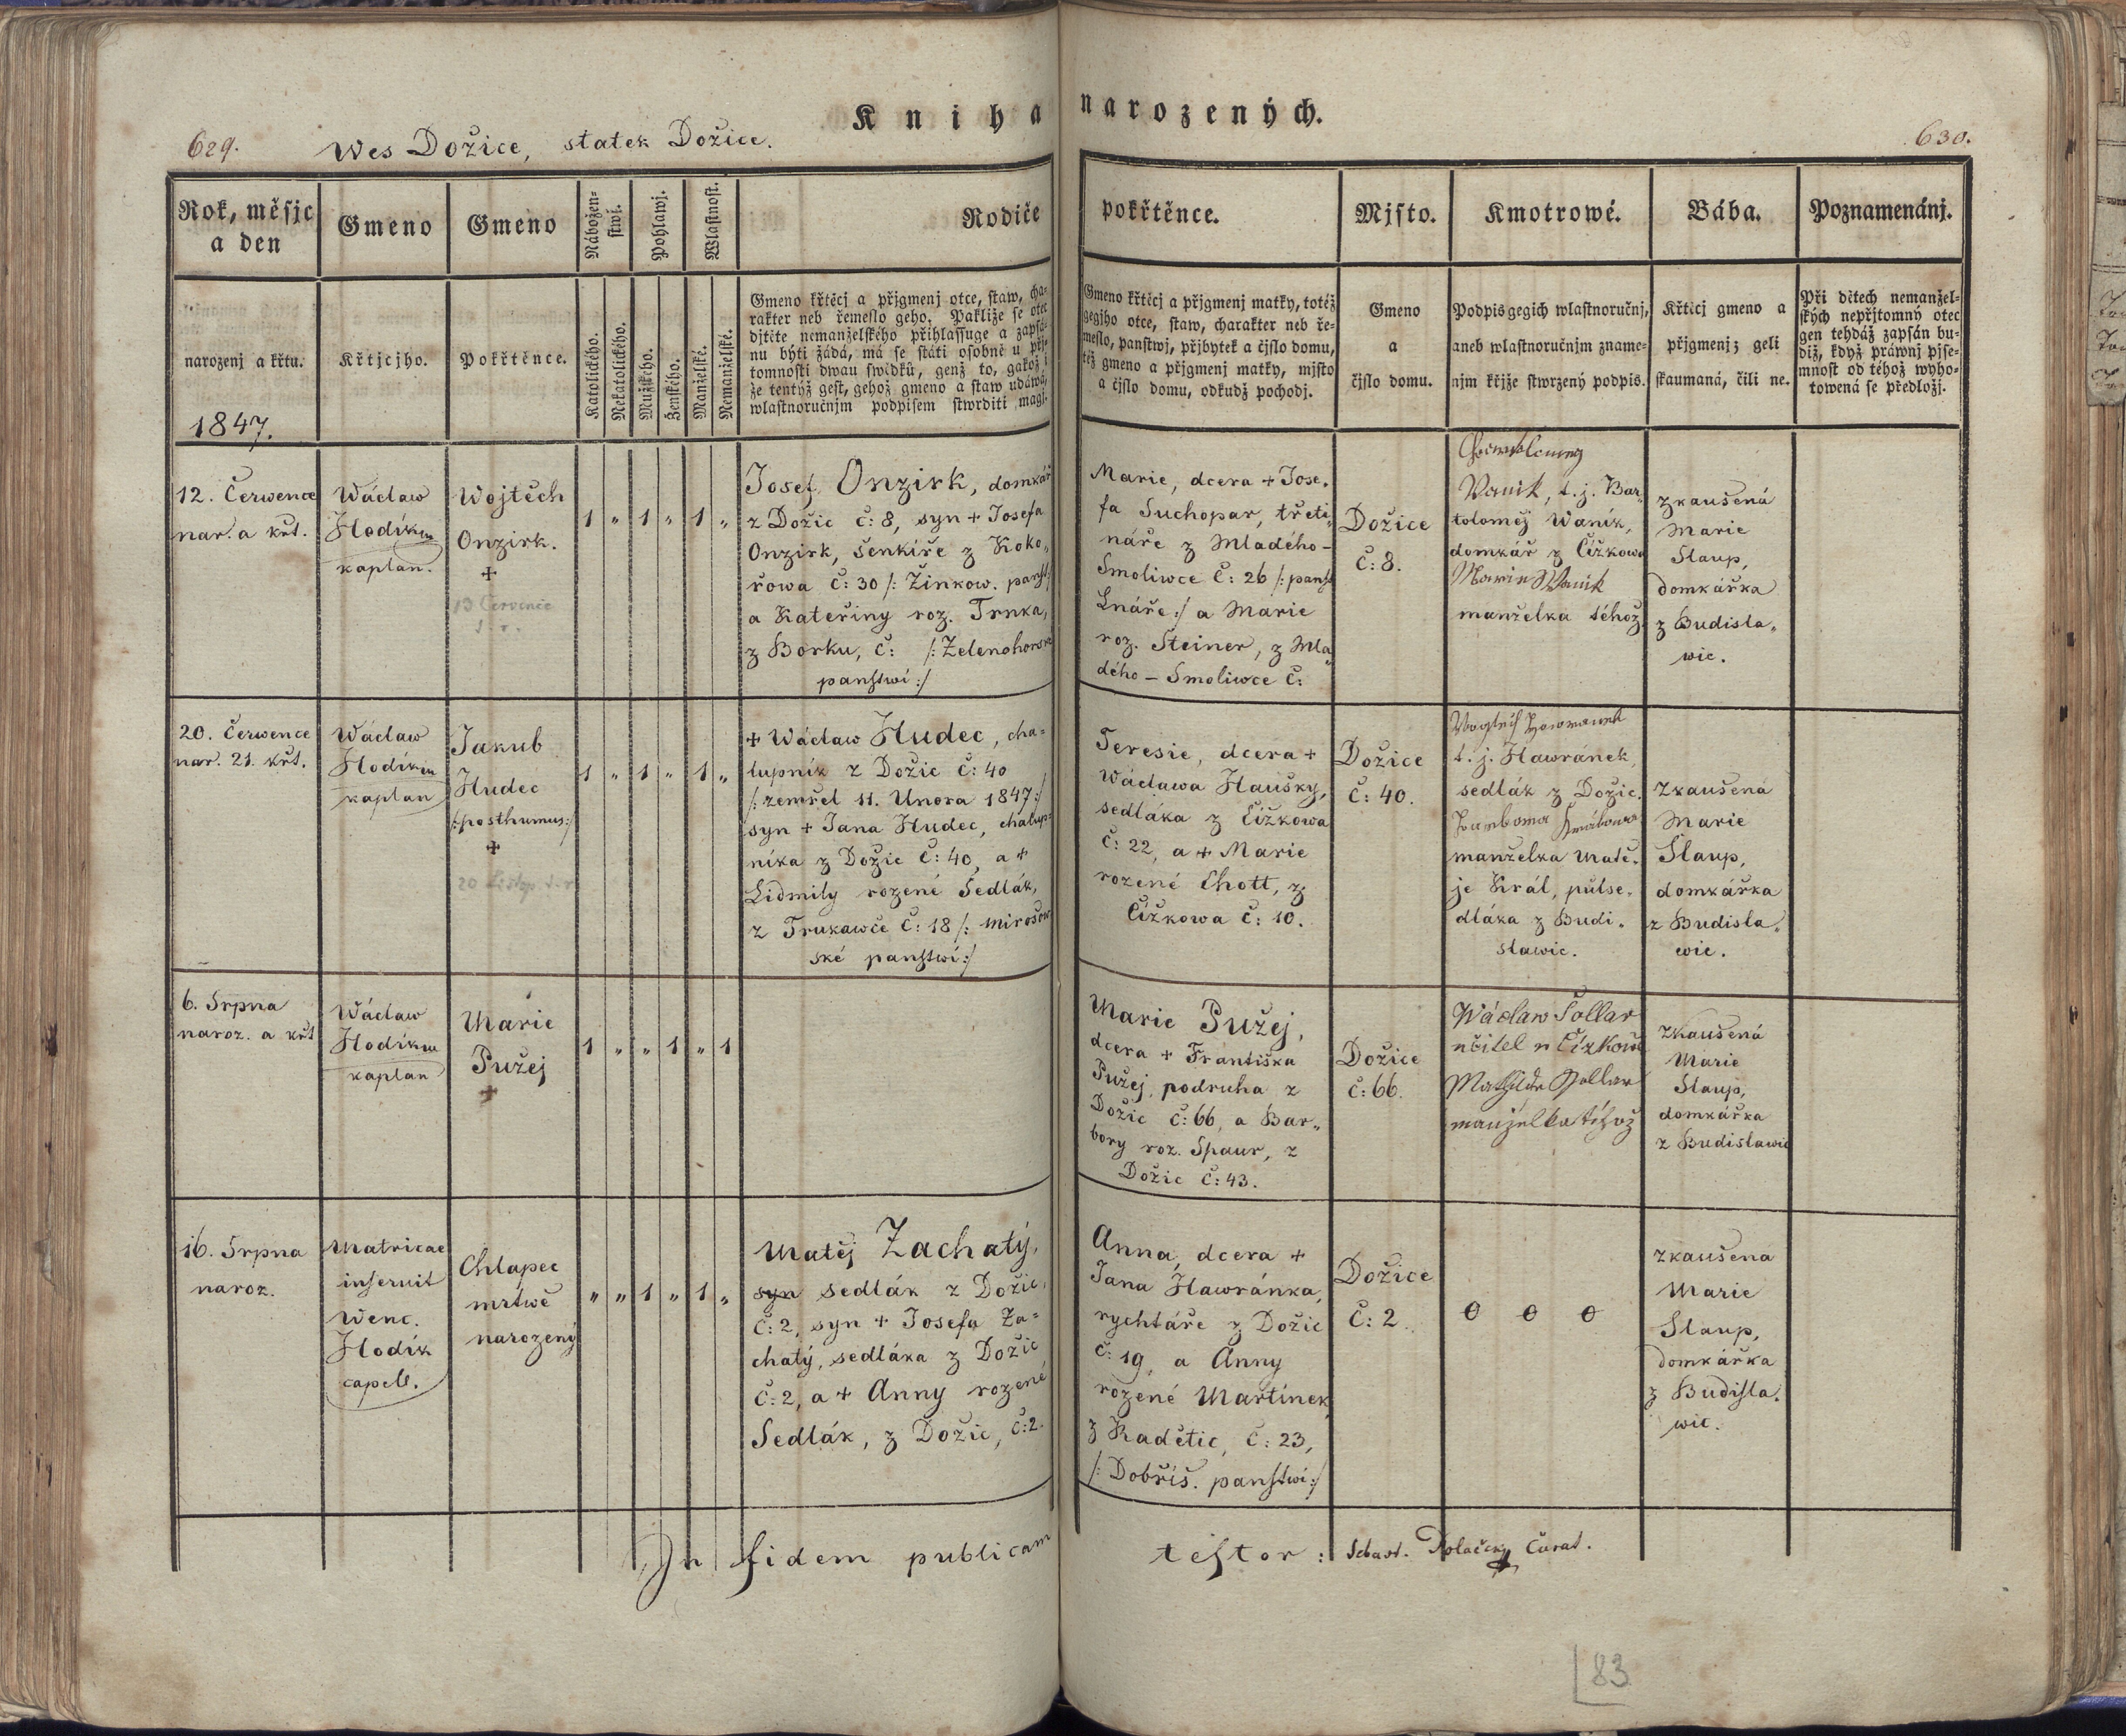 Kniha narozených.
629. Wes Dožice, statek Dožice. 630.
Rok, měsjc
a den
Gmeno
Gmeno
Nábožen-
stwj.
Pohlawj.
Wlastnost.
Rodiče pokřtěnce.
Mjsto.
Kmotrowé.
Bába.
Poznamenánj.
narozenj a křtu.
Křtjcjho.
Pokřtěnce.
Katolického.
Nekatolického.
Mužského.
Ženského.
Manželské.
Nemanželské.
Gmeno křtěcj a přjgmenj otce, staw, cha-
rakter neb řemeslo geho. Pakliže se otec
djtěte nemanželského přihlassuge a zapsá-
nu býti žádá, má se státi osobně u přj-
tomnosti dwau swědků, genž to, gakož i
že tentýž gest, gehož gmeno a staw udáwá,
wlastnoručnjm podpisem stwrditi magj.
Gmeno křtěcj a přjgmenj matky, totéž
gegjho otce, staw, charakter neb ře-
meslo, panstwj, přjbytek a čjslo domu,
též gmeno a přjgmenj matky, mjsto
a čjslo domu, odkudž pocházj.
Gmeno
a
čjslo domu.
Podpis gegich wlastnoručnj,
aneb wlastnoručnjm zname-
njm křjže stwrzený podpis.
Křtěcj gmeno a
přjgmenj; geli
skaumaná, čili ne.
Při dětech nemanžel-
ských nepřjtomný otec
gen tehdáž zapsán bu-
diž, když práwnj pjse-
mnost od téhož wyho-
towená se předložj.
1847.
12. Čerwence
nar. a křt.
Wáclaw
Hodík
kaplan.
Wojtěch
Onzirk.
+
13 Července
1 " 1 " 1 "
Josef Onzirk, domkář
z Dožic č: 8, syn + Josefa
Onzirk, šenkíře z Koko-
řowa č: 30 /: Žinkow. panst:/
a Kateřiny roz. Trnka,
z Borku, č: /: Zelenohorské
panstwi :/
Marie, dcera + Jose-
fa Suchopar, třeti-
náře z Mladého-
Smoliwce č: 26 /: panst
Lnáře :/ a Marie
roz. Steiner, z Mla-
dého - Smoliwce č:
Dožice
č: 8.
Vanik, t. j. Bar-
toloměj Waník,
domkář z Čížkowa
Marie Wanik
manželka téhož.
zkaušená
Marie
Slaup,
domkářka
z Budisla-
wic.
20. Čerwence
nar. 21. křt.
Wáclaw
Hodík
kaplan
Jakub
Hudec
/:posthumus:/
+
1 " 1 " 1 "
+ Wáclaw Hudec, cha-
lupník z Dožic č: 40
/: zemřel 11. Unora 1847 :/
syn + Jana Hudec, chalup-
níka z Dožic č: 40, a +
Lidmily rozené Sedlák,
z Trukawče č: 18 /: Mirošow
ské panstwi :/
Teresie, dcera +
Wáclawa Haušky,
sedláka z Čížkowa
č: 22, a + Marie
rozené Chott, z
Čížkowa č: 10.
Dožice
č: 40.
t. j. Hawránek,
sedlák z Dožic.
manželka Matě-
je Král, půlse-
dláka z Budi-
slawic.
Zkaušená
Marie
Slaup,
domkářka
z Budisla-
wic.
6. Srpna
naroz. a křt
Wáclaw
Hodík
kaplan
Marie
Pužej
+
1 " " 1 " 1
Marie Pužej,
dcera + Františka
Pužej, podruha z
Dožic č: 66, a Bar-
bory roz. Spaur, z
Dožic č: 43.
Dožice
č: 66.
Wáclaw Sollar
učitel w Čížkowě
Mathilde Sollar
manželka téhož
Zkaušená
Marie
Slaup,
domkářka
z Budislawic
16. Srpna
naroz.
Matricae
inseruit
Wenc.
Hodík
capell.
Chlapec
mrtwě
narozený
" " 1 " 1 "
Matěj Zachatý,
syn sedlák z Dožic,
č: 2, syn + Josefa Za-
chatý, sedláka z Dožic
č: 2, a + Anny rozené
Sedlák, z Dožic, č: 2.
Anna, dcera +
Jana Hawránka,
rychtáře z Dožic
č: 19, a Anny
rozené Martínek
z Radětic, č: 23,
/: Dobříš. panstwi :/
Dožice
č: 2.
0 0 0
zkaušená
Marie
Slaup,
domkářka
z Budisla-
wic.
In fidem publicam testor: Sebast. Polaček Curat.
83